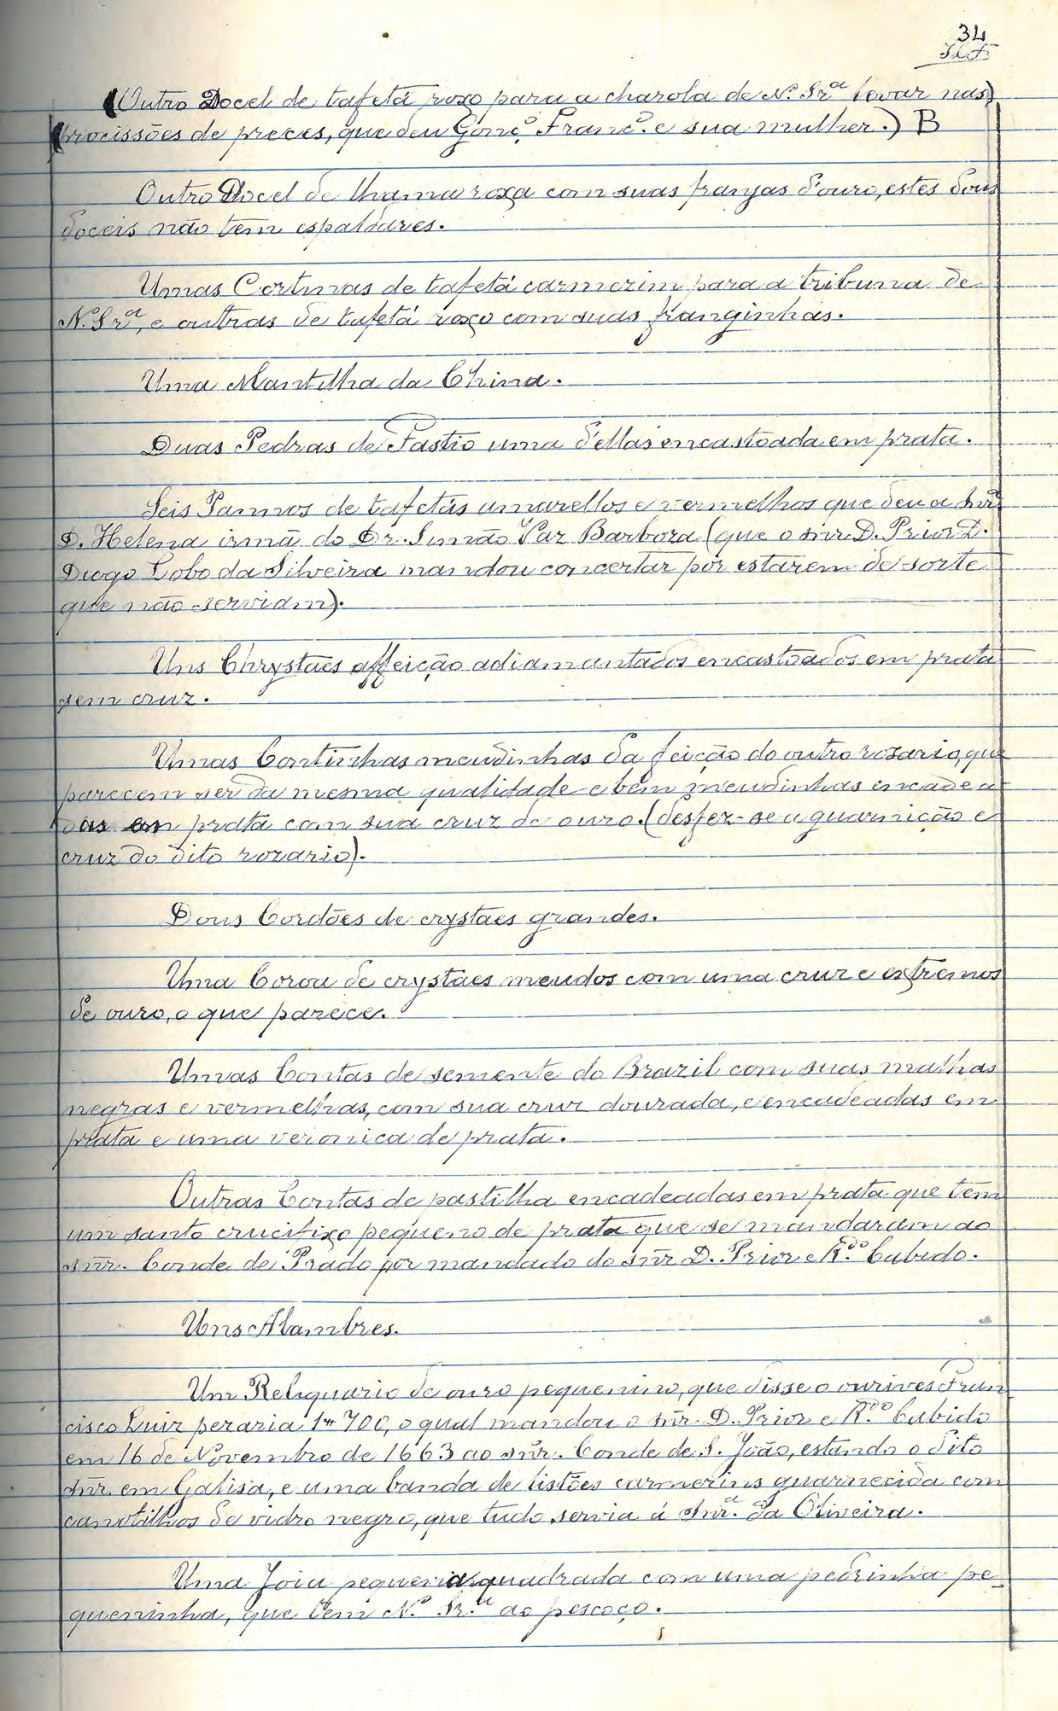 34
(Outro Docel de tafetá roxo para a charola de N.ª Sr.ª levar nas)
(procissões de preces, que deu Gonç.º Franc.º e sua mulher.) B
Outro Docel de lhama roxa com suas franjas d'ouro, estes dous
doceis não tem espaldares.
Umas Cortinas de tafetá carmezim para a tribuna de
N.ª Sr.ª, e outras de tafetá roxo com suas franginhas.
Uma Mantilha da China.
Duas Pedras de Fastio uma d'ellas encastoada em prata.
Seis Pannos de tafetás amarellos e vermelhos que deu a Snr.ª
D. Helena irmã do Dr. Simão Vaz Barboza (que o snr. D. Prior D.
Diogo Lobo da Silveira mandou concertar por estarem de sorte
que não serviam).
Uns Chrystaes affeição adiamantados encastoados em prata
sem cruz.
Umas Continhas meudinhas da feição do outro rosario, que
parecem ser da mesma qualidade e bem meudinhas encadea-
das em prata com sua cruz de ouro. (desfez-se a guarnição e
cruz do dito rozario).
Dous Cordões de crystaes grandes.
Uma Coroa de crystaes meudos com uma cruz e extremos
de ouro, o que parece.
Umas Contas de semente do Brazil com suas malhas
negras e vermelhas, com sua cruz dourada, e encadeadas em
prata e uma veronica de prata.
Outras Contas de pastilha encadeadas em prata que tem
um santo crucifixo pequeno de prata que se mandaram ao
snr. Conde de Prado por mandado do snr D. Prior e R.do Cabido.
Uns Alambres.
Um Reliquario de ouro pequenino, que disse o ourives Fran-
cisco Luiz pezaria 1m 700, o qual mandou o snr. D. Prior e R.do Cabido
em 16 de Novembro de 1663 ao snr. Conde de S. João, estando o dito
snr. em Galisa, e uma banda de listões carmezins guarnecida com
canotilhos de vidro negro, que tudo servia á Snr.ª da Oliveira.
Uma Joia pequena quadrada com uma pedrinha pe-
quenina, que tem N.ª Sr.ª ao pescoço.